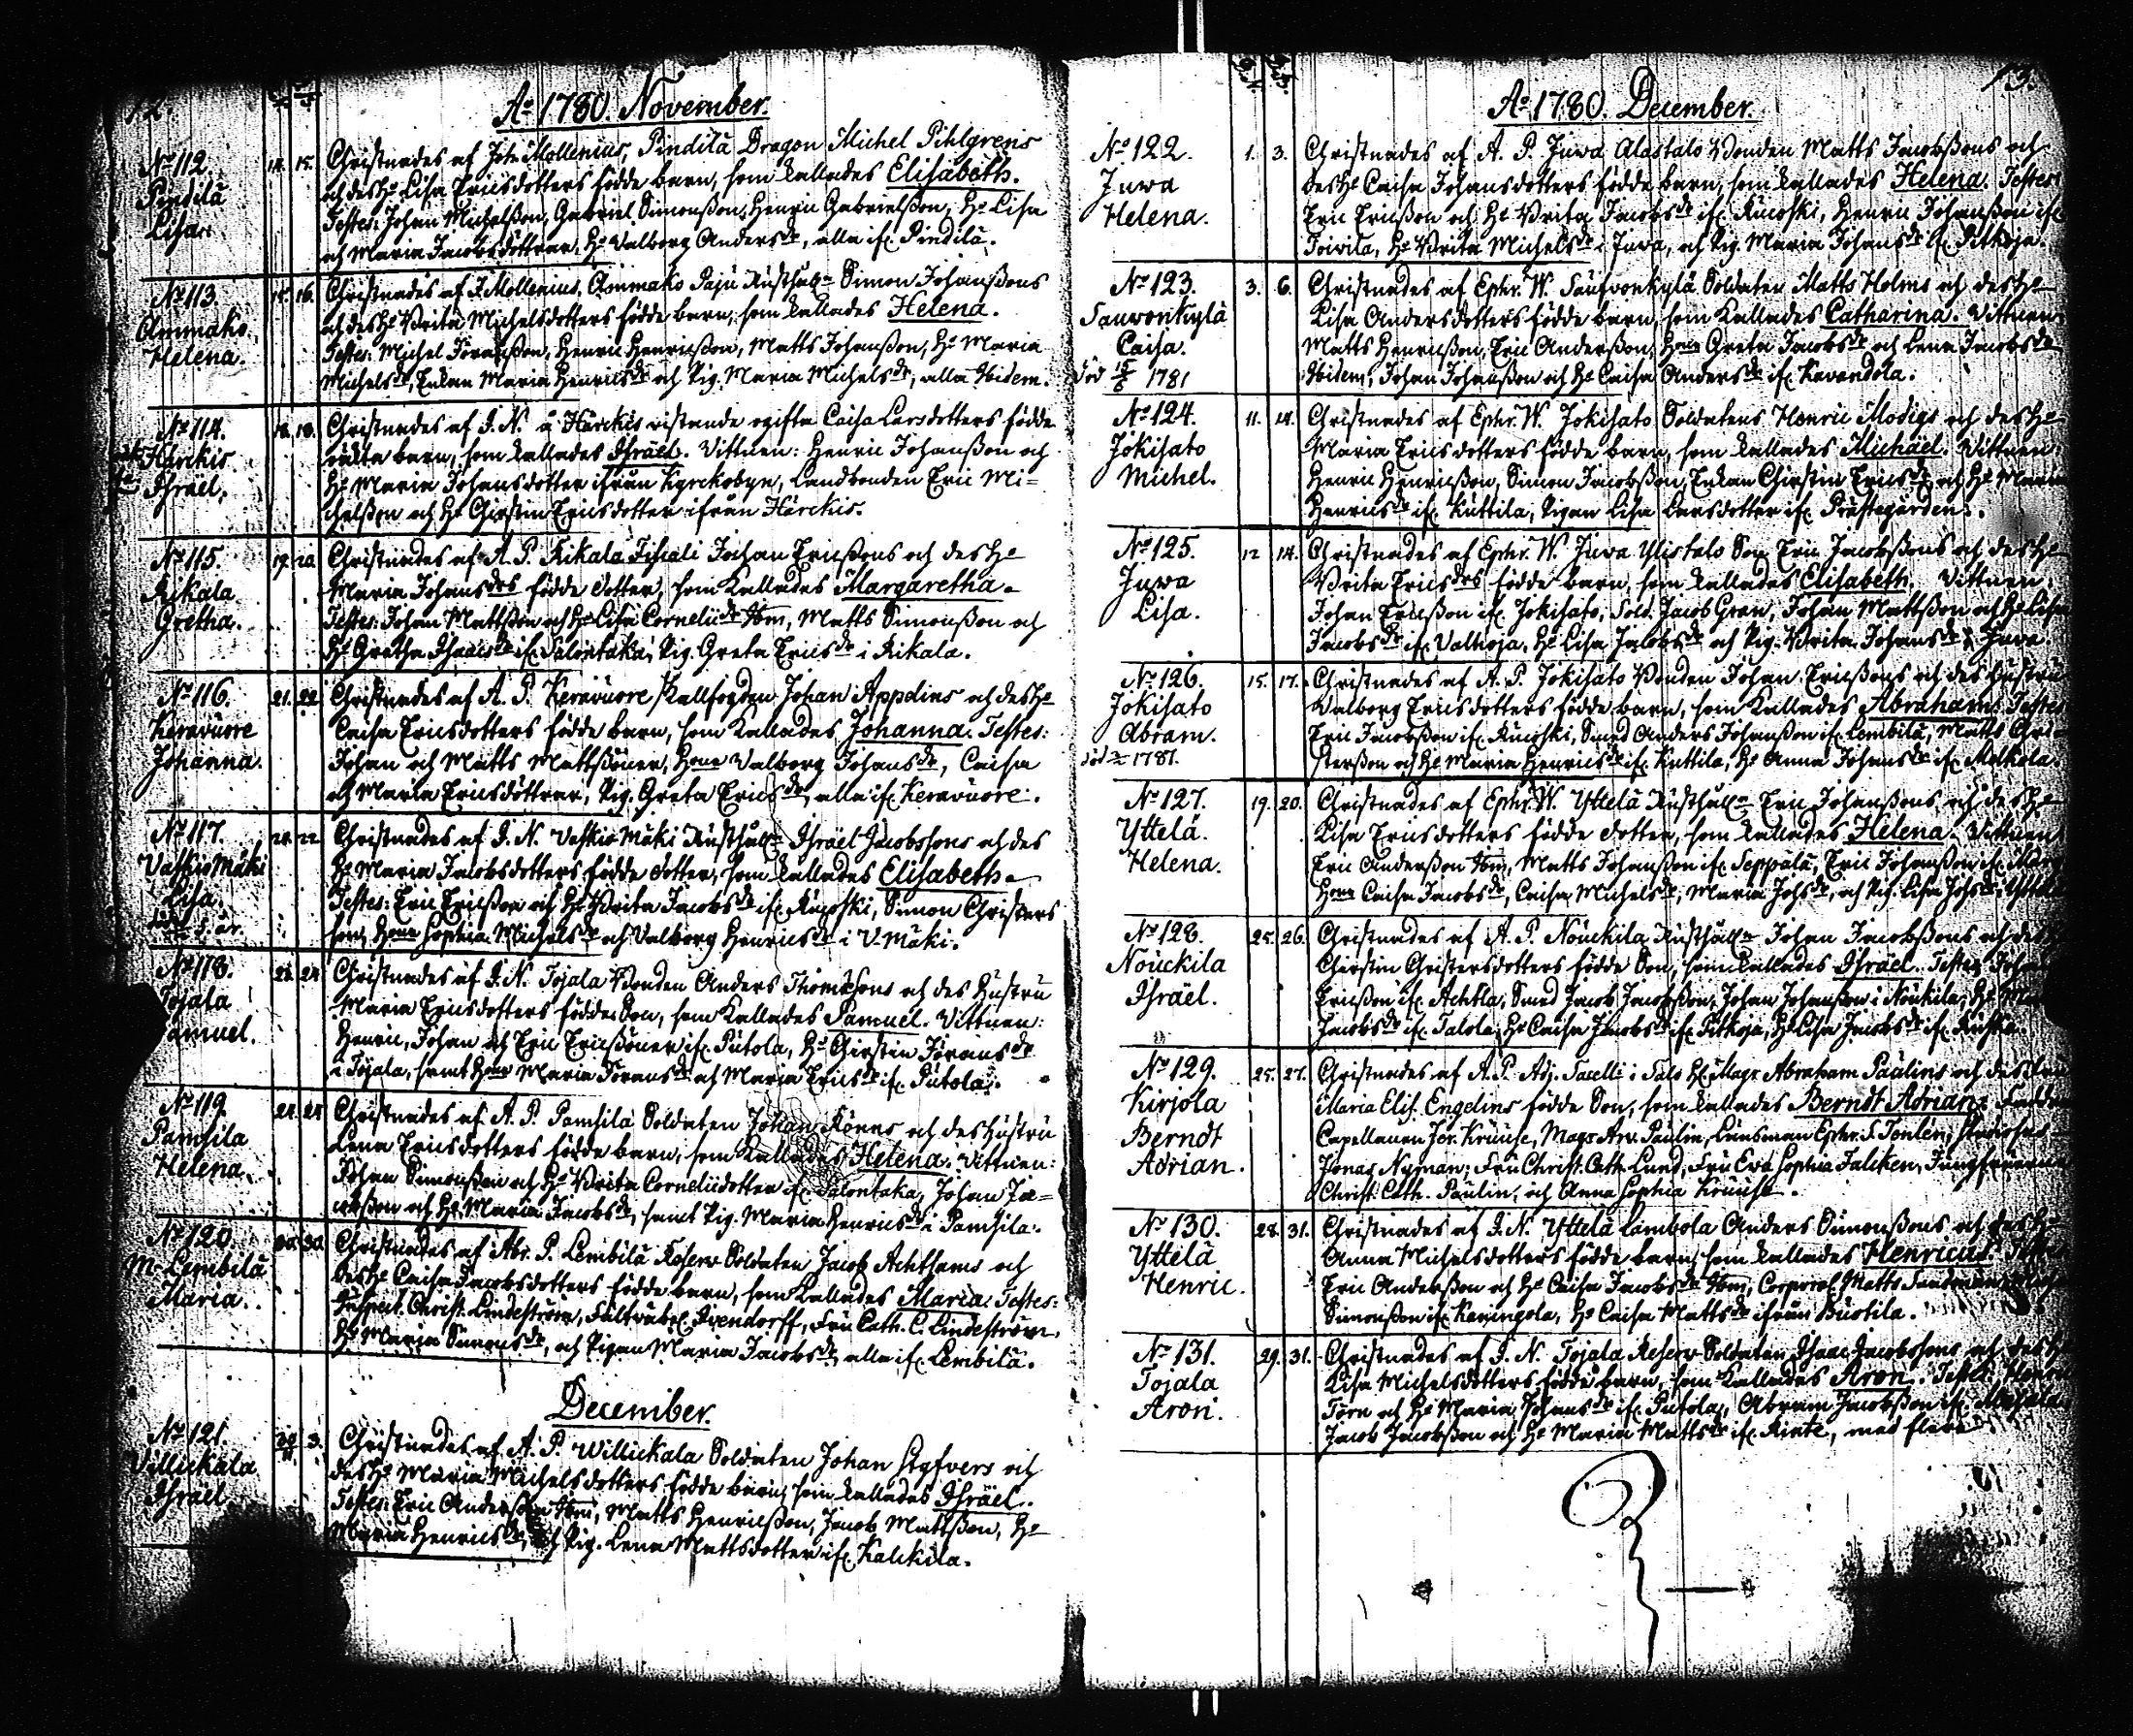 12.
Ao 1780. November.
No 112. 14. 15. Christnades af Joh: Mollenius, Pindilä Dragon Michel Pihlgrens
Pindilä och des He Lisa Ericsdotters födde barn, som kallades Elisabeth.
Lisa. Testes: Johan Michelsson, Gabriel Simonsson, Henric Gabrielsson, He Lisa
och Maria Jacobsdöttrar, He Valborg Andersdr, alla ifr. Pindilä.
No 113. 15. 16. Christnades af J. Mollenius, Ammako Paju Rusthålln Simon Johanssons
Ammako och des He Brita Michelsdotters födde barn, som kallades Helena.
Helena. Testes: Michel Göransson, Henric Henricsson, Matts Johansson, He Maria
Michelsdr, Enkan Maria Henricsdr och Pig. Maria Michelsdr, alla Ibidem.
No 114. 18. Christnades af J. N. å Härckis vistande ogifta Caisa Larsdotters födde
Härckis oäkta barn, som kallades Israël. Vittnen: Henric Johansson och
Israël. He Maria Johansdotter ifrån Kyrckobyn, Landbonden Eric Mi=
chelsson och He Chirstin Ericsdotter ifrån Härckis.
No 115. 19. 20. Christnades af A. P. Rikala Johan Ericssons och des He
Rikala Maria Johansdrs födde dotter, som kallades Margaretha.
Gretha. Testes: Johan Mattsson och He Lisa Corneliidr Ibm, Matts Simonsson och
He Gretha Isaacsdr ifr. Salontaka, Pig. Greta Ericsdr i Rikala.
No 116. 21. 22. Christnades af A. P. Keravuore Johan Appelins och des He
Keravuore Caisa Ericsdotters födde barn, som kallades Johanna. Testes:
Johanna. Johan och Matts Mattssöner, Hone Valborg Johansdr, Caisa
och Maria Ericsdöttrar, Pig. Greta Ericsdr, alla ifr. Keravuore.
No 117. 22. Christnades af J. N. Vaskio Mäki Rusthålln Israël Jacobssons och des
Vaskio Mäki He Maria Jacobsdotters födde dotter, som kallades Elisabeth.
Lisa. Testes: Eric Ericsson och He Brita Jacobsdr ifr. Ruoski, Simon Christers
5. år. son, Hone Sophia Michelsdr och Valborg Henricsdr i V. Mäki.
No 118. 24. Christnades af J. N. Tojala Bonden Anders Thomassons och des Hustru
Tojala Maria Ericsdotters födde Son, som kallades Samuel. Vittnen:
Samuel. Henric, Johan och Eric Ericssöner ifr. Putola, He Chirstin Göransdr
i Tojala, samt Hone Maria Göransdr och Maria Ericsdr ifr. Putola.
No 119. Christnades af A. P. Pamsila Soldaten Johan Rönns och des Hustru
Pamsila Lena Ericsdotters födde barn, som kallades Helena. Vittnen:
Helena. Johan Simonsson och He Brita Corneliidotter ifr. Salontaka, Johan Ja=
cobsson och He Maria Jacobsdr, samt Pig. Maria Henricsdr i Pamsila.
No 120. 30. Christnades af Abr. P. Lembilä Reserv Soldaten Jacob Achthams och
M. Lembilä des He Caisa Jacobsdotters födde barn, som kallades Maria. Testes:
Maria. Inspect. Christ. Lindeström, Fru Cath. C. Lindeström,
He Maria Simonsdr, och Pigan Maria Jacobsdr, alla ifr. Lembilä.
December.
No 121. 3. Christnades af A. P. Willickala Soldaten Johan Styfvers och
Villickala des He Maria Michelsdotters födde barn, som kallades Israël.
Israël. Testes: Eric Andersson Ibm, Matts Henricsson, Jacob Mattsson, He
Maria Henricsdr, och Pig. Lena Mattsdotter ifr. Kalckila.
13.
Ao 1780. December.
No 122. 1. 3. Christnades af A. P. Juva Alastalo Bonden Matts Jacobssons och
Juva des He Caisa Johansdotters födde barn, som kallades Helena. Testes:
Helena. Eric Ericsson och He Brita Jacobsdr ifr. Ruoski, Henric Johansson ifr.
Toivila, He Brita Michelsdr i Juva, och Pig. Maria Johansdr ifr. Pitkoja.
No 123. 3. 6. Christnades af Ephr. W. Saufvonkylä Soldaten Matts Holms och des He
Sauvonkylä Lisa Andersdotters födde barn, som kallades Catharina. Vittnen:
Caisa. Matts Henricsson, Eric Andersson, Hone Greta Jacobsdr och Lena Jacobsdr
död 1781 Ibidem, Johan Johansson och He Caisa Andersdr ifr. Kavandola.
No 124. 11. 14. Christnades af Ephr. W. Jokisato Soldatens Henric Modigs och des He
Jokisato Maria Ericsdotters födde barn, som kallades Michaël. Vittnen:
Michel. Henric Henricsson, Simon Jacobsson, Enkan Chirstin Ericsdr, och He Maria
Henricsdr ifr. Kuttila, Pigan Lisa Larsdotter ifr. Prästegården.
No 125. 12 14. Christnades af Ephr. W. Juva Ylistalo Son Eric Jacobssons och des He
Juva Brita Ericsdrs födde barn, som kallades Elisabeth. Vittnen:
Lisa. Johan Ericsson ifr. Jokisato, Sold. Jacob Gran, Johan Mattsson och He Lisa
Jacobsdr ifr. Valkoja, He Lisa Jacobsdr och Pig. Brita Johansdr i Juva.
No 126. 15. 17. Christnades af A. P. Jokisato Bonden Johan Ericssons och des Hustru
Jokisato Valborg Ericsdotters födde barn, som kallades Abraham. Testes:
Abram. Eric Jacobsson ifr. Ruohski, Smed Anders Johansson ifr. Lembilä, Matts Chri-
död 1781. stersson och He Maria Henricsdr ifr. Kuttila, He Anna Johansdr ifr. Molkola.
No 127. 19. 20. Christnades af Ephr. W. Yttelä Rusthålln Eric Johanssons och des He
Yttelä. Lisa Ericsdotters födde dotter, som kallades Helena. Vittnen:
Helena. Eric Andersson Ibm, Matts Johansson ifr. Seppälä, Eric Johansson ifr.
Hone Caisa Jacobsdr, Caisa Michelsdr, Maria Johsdr, och Pig. Lisa Johsdr i Yttelä
No 128. 25. 26. Christnades af A. P. Nouckila Rusthålln Johan Jacobssons och des He
Nouckila Chirstin Christersdotters födde Son, som kallades Israël. Testes: Johan
Israël. Ericsson ifr. Achtla, Smed Jacob Jacobsson, Johan Johansson i Nouckila, He
Jacobsdr ifr. Talola, He Caisa Jacobsdr ifr. Pitkoja, He Lisa Jacobsdr ifr.
No 129. 25. 27. Christnades af A. P. Adj. Sacelli i Salo H. Magr Abraham Paulins och des Fru
Kirjola Maria Elis. Engelins födde Son, som kallades Berndt Adrian.
Berndt Capellanen Jor. Kruuse, Magr Arv. Paulin, Länsman Ephr. S. Tonlén,
Adrian. Jonas Nyman; Fru Christ. Cath. Lund, Fru Eva Sophia Falcken, Jungfrurna
Christ. Cath. Paulin, och Anna Sophia Kruuse.
No 130. 28. 31. Christnades af J. N. Yttelä Lambola Anders Simonssons och des He
Yttelä Anna Michelsdotters födde barn, som kallades Henricus.
Henric. Eric Andersson och He Caisa Jacobsdr Ibm, Corporal Matts Sandman,
Simonsson ifr. Kaningola, He Caisa Mattsdr ifrån Buotila.
No 131. 29. 31. Christnades af J. N. Tojala Reserv Soldaten Isaac Jacobssons och des He
Tojala Lisa Michelsdotters födde barn, som kallades Aron. Testes: Henric
Aron. Törn och He Maria Johansdr ifr. Putola, Abram Jacobsson ifr.
Jacob Jacobsson och He Maria Mattsdr ifr. Kinte, med flera